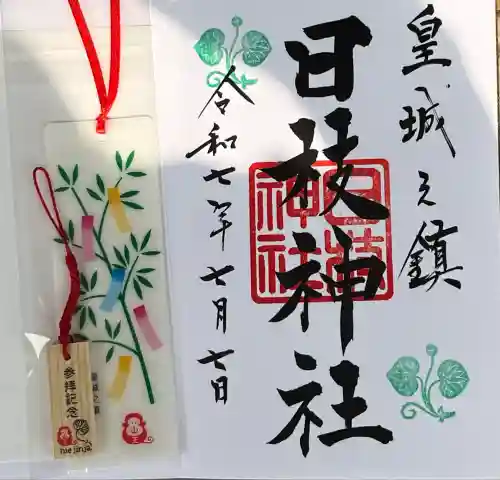 皇城之鎮
日枝神社
日枝神社
令和七年七月七日
参拝記念
山王